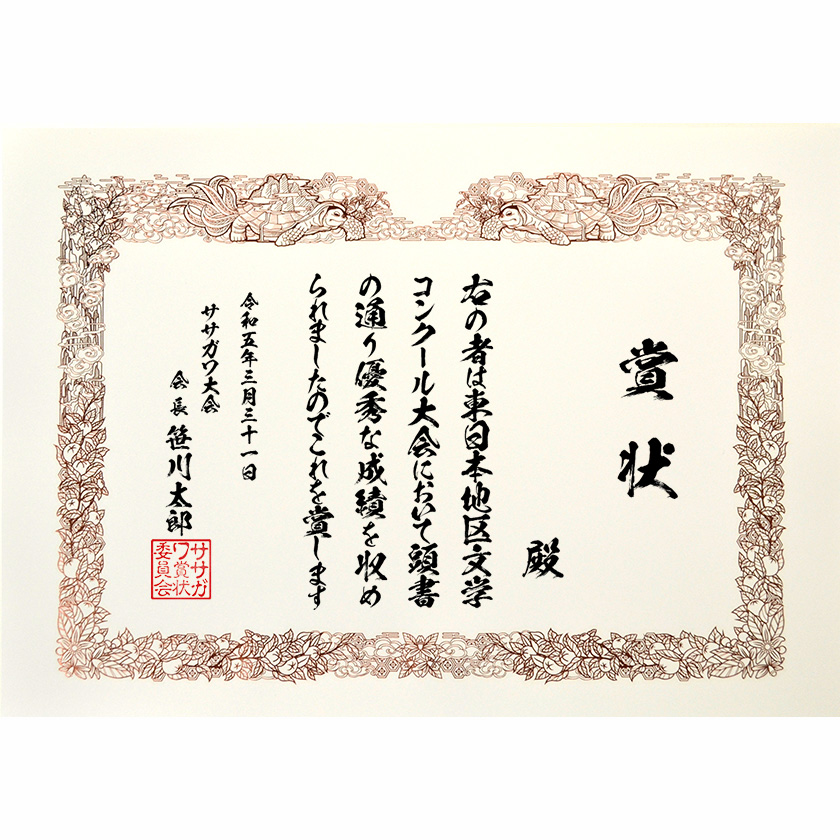 賞状
殿
右の者は東日本地区文学
コンクール大会において頭書
の通り優秀な成績を収め
られましたのでこれを賞します
令和五年三月三十一日
ササガワ大会
会長 笹川太郎
ササガ
ワ賞状
委員会